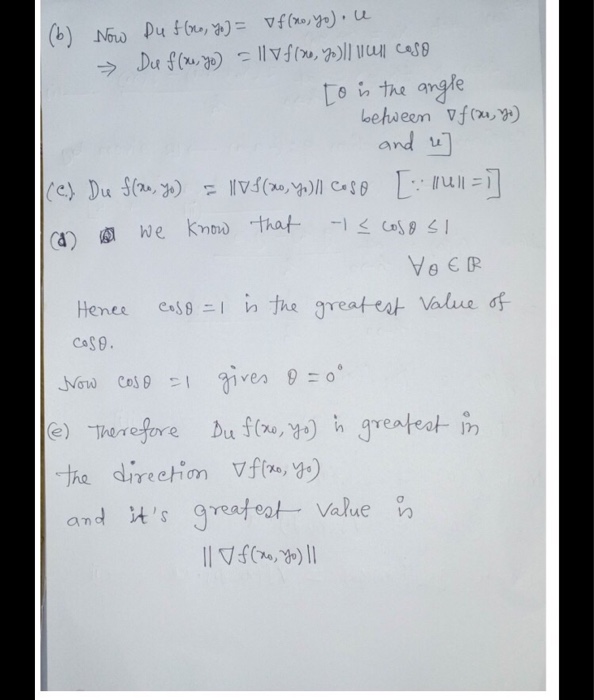 (b) Now Du f(x₀, y₀) = ∇f(x₀, y₀) . u
⇒ Du f(x₀, y₀) = ||∇f(x₀, y₀)|| ||u|| cosθ
[θ is the angle
between ∇f(x₀, y₀)
and u]
(c) Du f(x₀, y₀) = ||∇f(x₀, y₀)|| cosθ [∵ ||u|| = 1]
(d) We know that -1 ≤ cosθ ≤ 1
∀θ ∈ ℝ
Hence cosθ = 1 is the greatest value of
cosθ.
Now cosθ = 1 gives θ = 0°
(e) Therefore Du f(x₀, y₀) is greatest in
the direction ∇f(x₀, y₀)
and it's greatest value is
||∇f(x₀, y₀)||